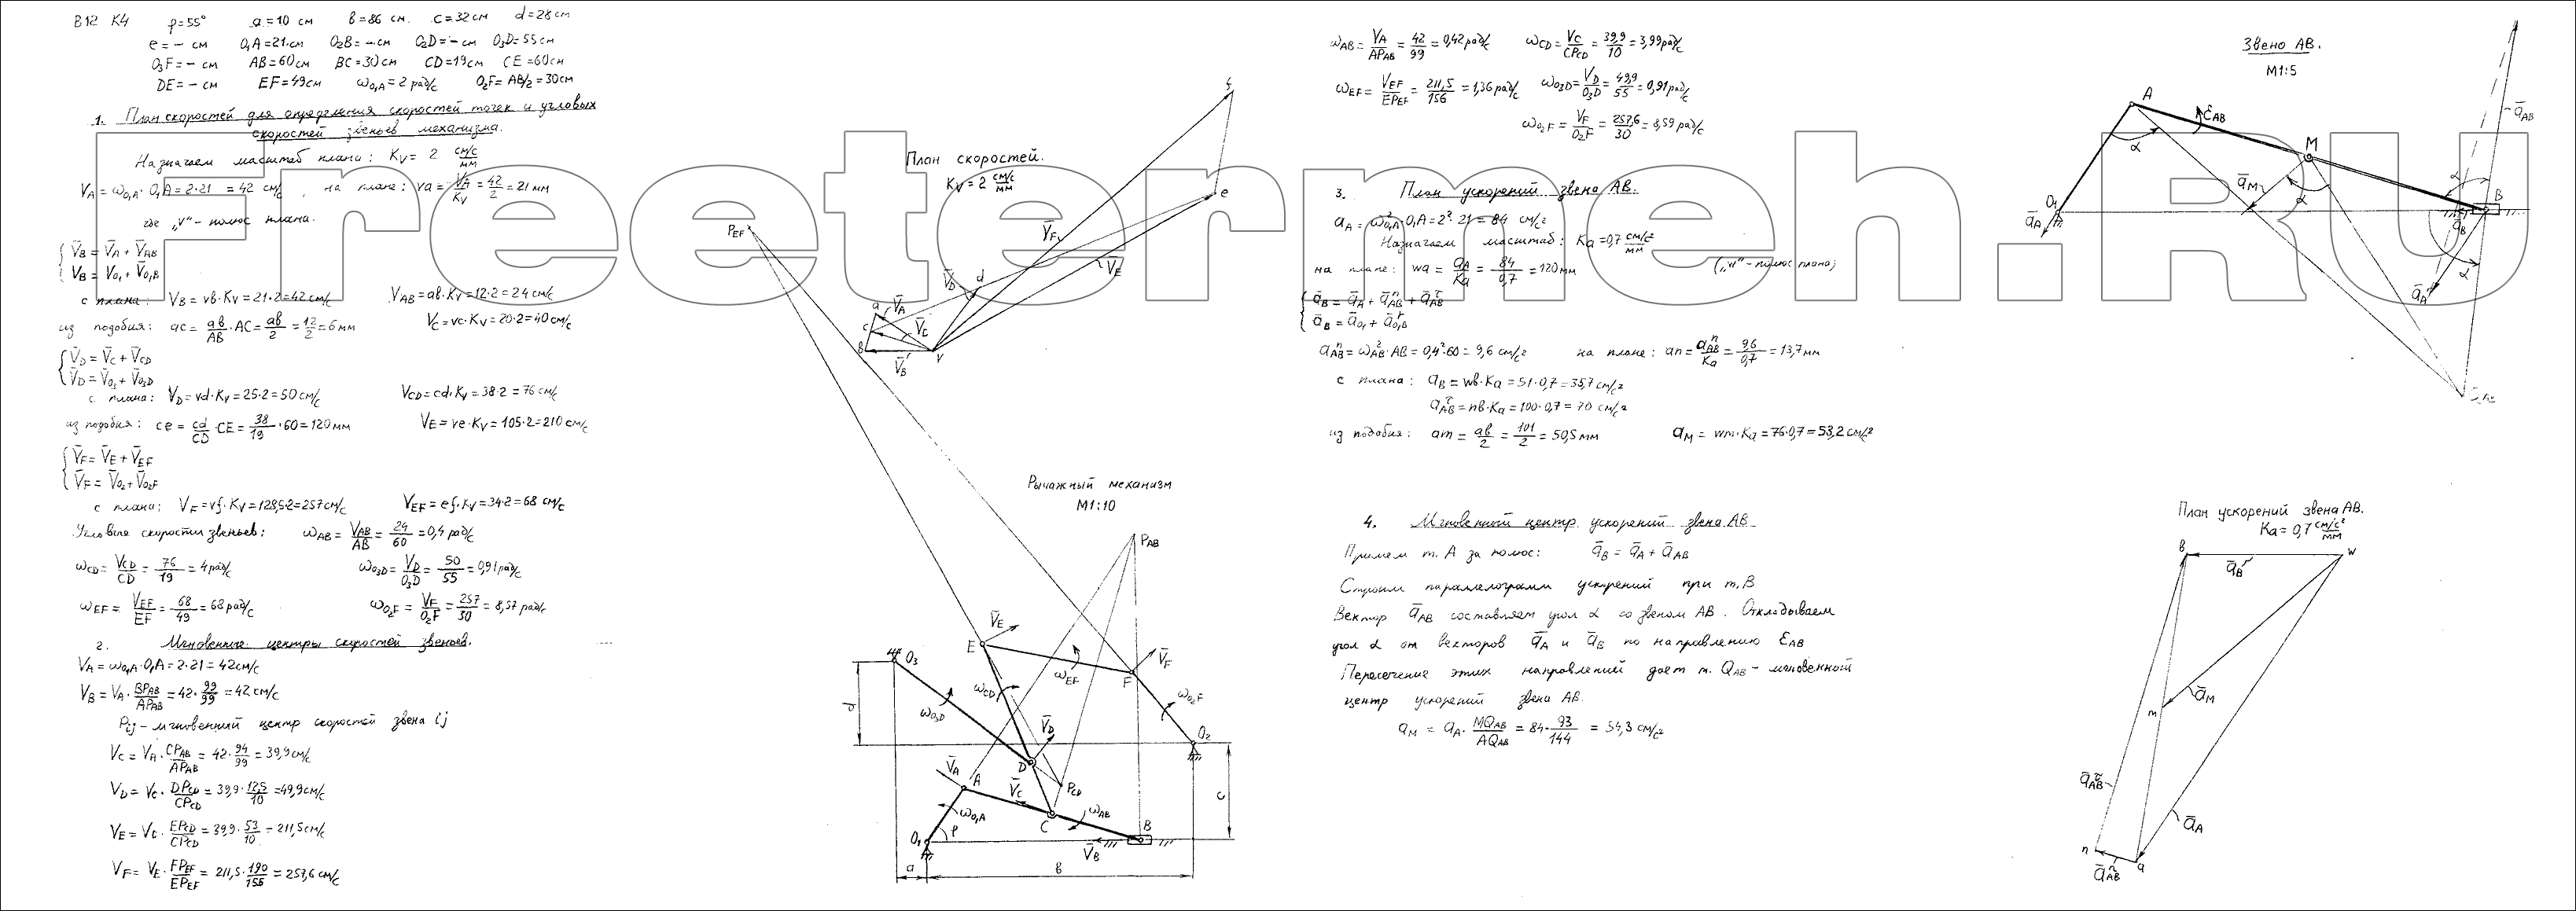 В12 К4 φ=55° a=10 см в=86 см. с=32см d=28см
e=- см O₁A=21см O₂B=-см O₂D=-см O₃D=55см
O₃F=- см AB=60см BC=30см CD=19см CE=60см
DE=- см EF=49см ω_O₁A=2 рад/с O₂F=AB/2=30см
1. План скоростей для определения скоростей точек и угловых
скоростей звеньев механизма.
Назначаем масштаб плана: Kv= 2 см/с/мм
V_A=ω_O₁A·O₁A=2·21=42 см/с, на плане: va=V_A/Kv=42/2=21мм
где „v"-полюс плана.
V̄_B=V̄_A+V̄_AB
V̄_B=V̄_O₁+V̄_O₁B
с плана: V_B=vв·Kv=21·2=42см/с V_AB=aв·Kv=12·2=24см/с
из подобия: ac=aв/AB·AC=aв/2=12/2=6мм V_C=vc·Kv=20·2=40см/с
V̄_D=V̄_C+V̄_CD
V̄_D=V̄_O₃+V̄_O₃D
с плана: V_D=vd·Kv=25·2=50см/с V_CD=cd·Kv=38·2=76см/с
из подобия: ce=cd/CD·CE=38/19·60=120мм V_E=ve·Kv=105·2=210см/с
V̄_F=V̄_E+V̄_EF
V̄_F=V̄_O₂+V̄_O₂F
с плана: V_F=vf·Kv=128,5·2=257см/с V_EF=ef·Kv=34·2=68 см/с
Угловые скорости звеньев: ω_AB=V_AB/AB=24/60=0,4рад/с
ω_CD=V_CD/CD=76/19=4рад/с ω_O₃D=V_D/O₃D=50/55=0,91рад/с
ω_EF=V_EF/EF=68/49=68рад/с ω_O₂F=V_F/O₂F=257/30=8,57рад/с
2. Мгновенные центры скоростей звеньев.
V_A=ω_O₁A·O₁A=2·21=42см/с
V_B=V_A·BP_AB/AP_AB=42·99/99=42см/с
P_ij-мгновенный центр скоростей звена ij
V_C=V_A·CP_AB/AP_AB=42·94/99=39,9см/с
V_D=V_C·DP_CD/CP_CD=39,9·12,5/10=49,9см/с
V_E=V_C·EP_CD/CP_CD=39,9·53/10=211,5см/с
V_F=V_E·FP_EF/EP_EF=211,5·190/156=257,6см/с
План скоростей.
Kv=2 см/с/мм
f
e
d
a
c
в
v
V̄_F
V̄_E
V̄_D
V̄_A
V̄_C
V̄_B
P_EF
Рычажный механизм
М1:10
P_AB
V̄_E
E
O₃
V̄_F
F
ω_EF
ω_CD
ω_O₃D
ω_O₂F
V̄_D
O₂
d
D
V̄_A
A
P_CD
V̄_C
c
ω_O₁A
ω_AB
C
B
O₁
φ
V̄_B
a
в
ω_AB=V_A/AP_AB=42/99=0,42рад/с ω_CD=V_C/CP_CD=39,9/10=3,99рад/с
ω_EF=V_EF/EP_EF=211,5/156=1,36рад/с ω_O₃D=V_D/O₃D=49,9/55=0,91рад/с
ω_O₂F=V_F/O₂F=257,6/30=8,59рад/с
3. План ускорений звена AB.
a_A=ω²_O₁A·O₁A=2²·21=84 см/с²
Назначаем масштаб: Ka=0,7 см/с²/мм
на плане: wa=a_A/Ka=84/0,7=120мм („w"-полюс плана)
ā_B=ā_A+ā_AB^n+ā_AB^τ
ā_B=ā_O₁+ā_O₁B^r
a_AB^n=ω²_AB·AB=0,4²·60=9,6 см/с² на плане: an=a_AB^n/Ka=9,6/0,7=13,7мм
с плана: a_B=wв·Ka=51·0,7=35,7см/с²
a_AB^τ=nв·Ka=100·0,7=70 см/с²
из подобия: am=aв/2=101/2=50,5мм a_M=wm·Ka=76·0,7=53,2см/с²
4. Мгновенный центр ускорений звена AB
Примем т. A за полюс: ā_B=ā_A+ā_AB
Строим параллелограмм ускорений при т. B
Вектор ā_AB составляет угол α со звеном AB. Откладываем
угол α от векторов ā_A и ā_B по направлению ε_AB
Пересечение этих направлений дает т. Q_AB-мгновенный
центр ускорений звена AB.
a_M=a_A·MQ_AB/AQ_AB=84·93/144=54,3см/с²
Звено AB.
М1:5
A
ε_AB
ā_AB
α
M
ā_M
α
α
O₁
B
ā_A
ā_B
α
ā_A
Q_AB
План ускорений звена AB.
Ka=0,7 см/с²/мм
в
w
ā_B
ā_M
m
ā_AB^τ
ā_A
n
a
ā_AB^n
Freetermeh.RU